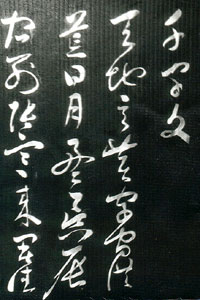 千字文
天地玄黃宇宙洪
荒日月盈昃辰
宿列張寒來暑往